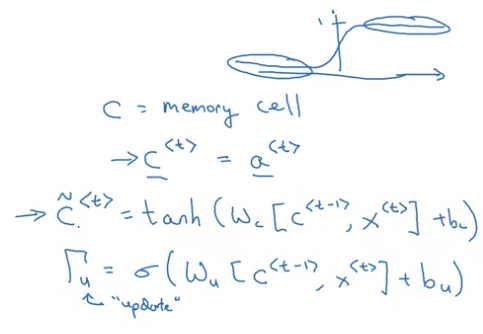 1
C = memory cell
→ C^{<t>} = a^{<t>}
→ C̃^{<t>} = tanh(W_c[c^{<t-1>}, x^{<t>}] + b_c)
Γ_u = σ(W_u[c^{<t-1>}, x^{<t>}] + b_u)
"update"